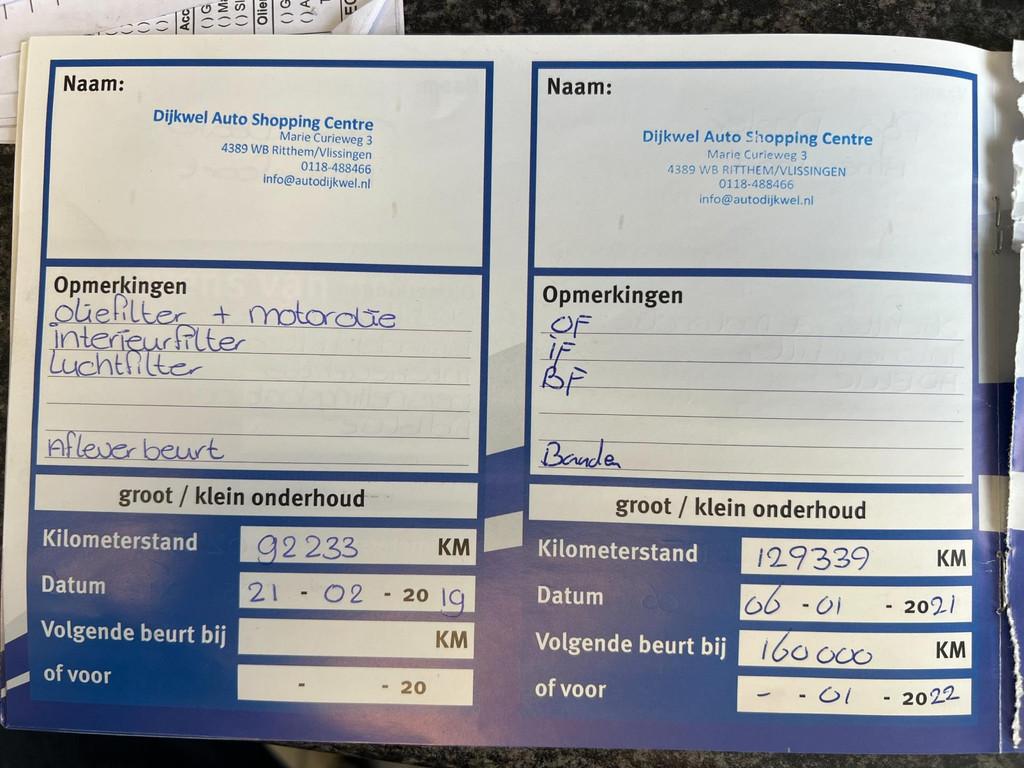 Naam:
Dijkwel Auto Shopping Centre
Marie Curieweg 3
4389 WB Ritthem/Vlissingen
0118-488466
info@autodijkwel.nl
Opmerkingen
oliefilter + motorolie
interieurfilter
Luchtfilter
Afleverbeurt
groot / klein onderhoud
Kilometerstand 92233 KM
Datum 21 - 02 - 20 19
Volgende beurt bij KM
of voor - - 20
Naam:
Dijkwel Auto Shopping Centre
Marie Curieweg 3
4389 WB RITTHEM/VLISSINGEN
0118-488466
info@autodijkwel.nl
Opmerkingen
OF
iF
BF
Banden
groot / klein onderhoud
Kilometerstand 129339 KM
Datum 06 - 01 - 2021
Volgende beurt bij 160000 KM
of voor - - 01 - 2022